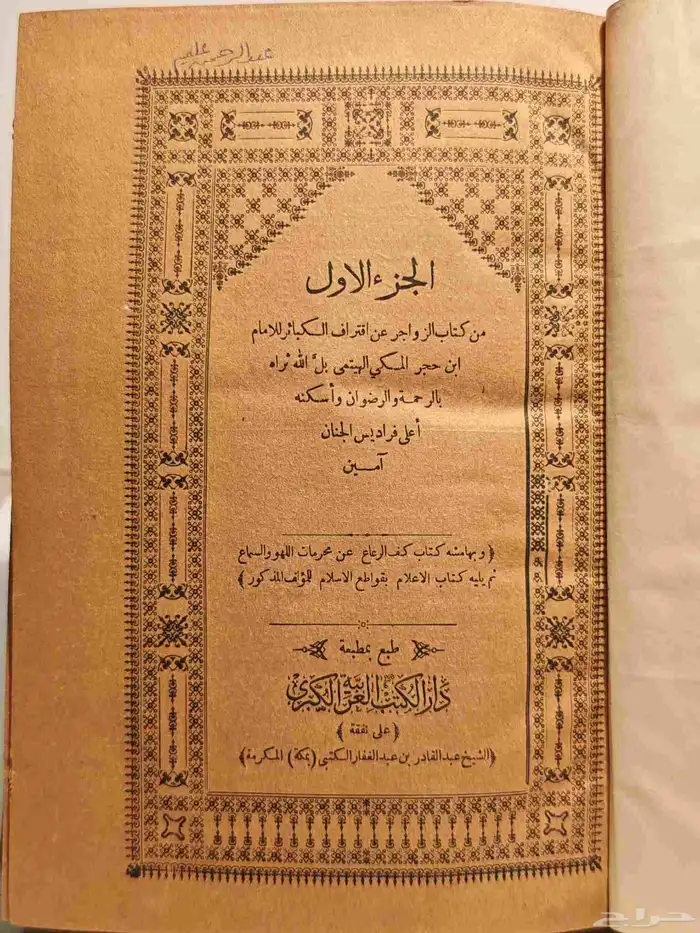 الجزء الاول
من كتاب الزواجر عن اقتراف الكبائر للامام
ابن حجر المكي الهيتمى بلّ الله ثراه
بالرحمة والرضوان وأسكنه
أعلى فراديس الجنان
آمين
﴿ وبهامشه كتاب كف الرعاع عن محرمات اللهو والسماع
ثم يليه كتاب الاعلام بقواطع الاسلام للمؤلف المذكور ﴾
طبع بمطبعة
دار الكتب العربية الكبرى
﴿ على نفقة ﴾
﴿الشيخ عبد القادر بن عبد الغفار الكتبى (بمكة) المكرمة﴾
حراج